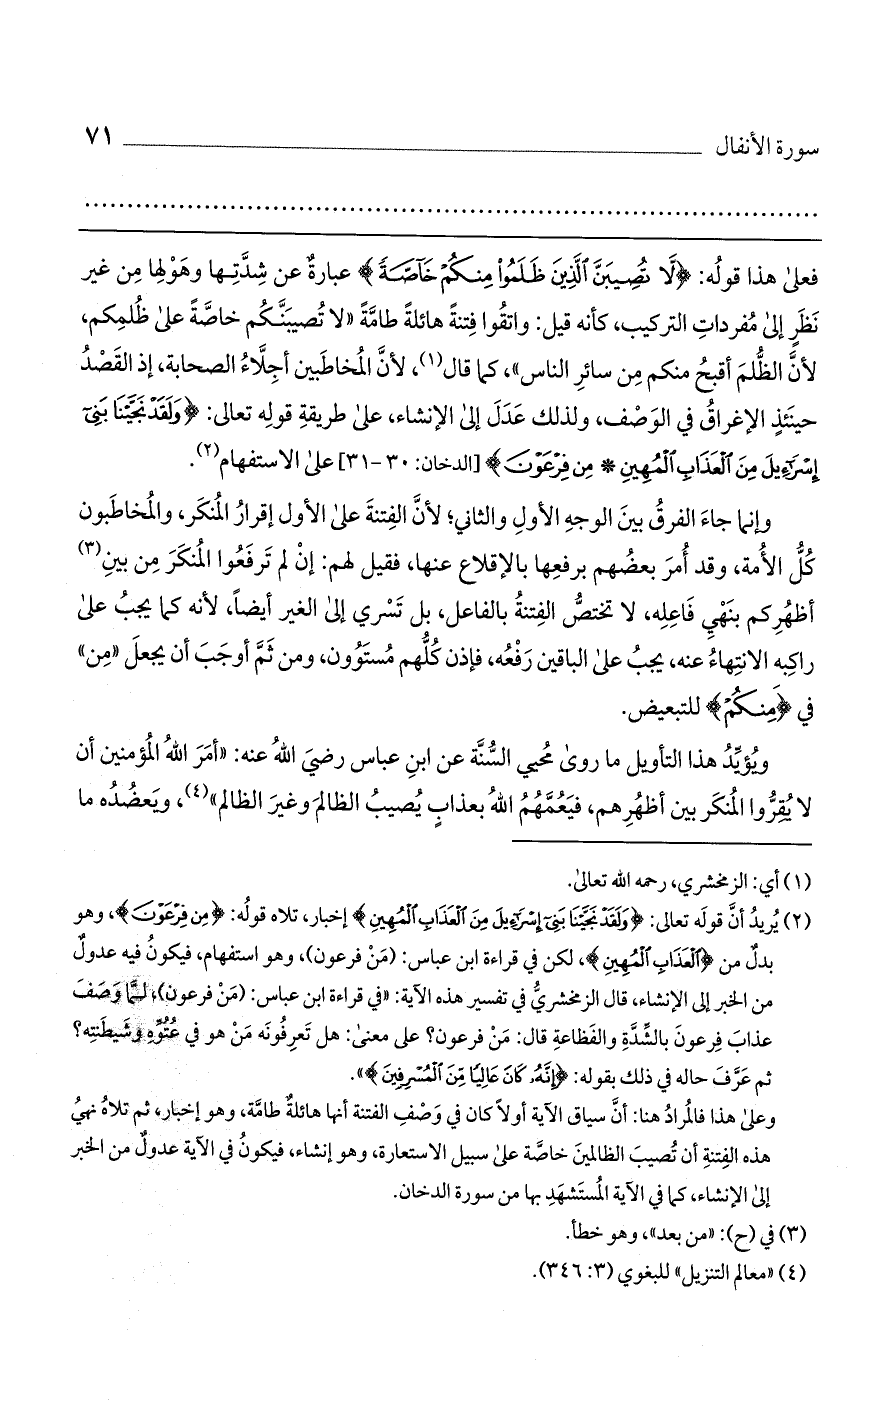 سورة الأنفال ٧١
................................................................................
فعلىٰ هذا قولُه: ﴿لَّا تُصِيبَنَّ ٱلَّذِينَ ظَلَمُواْ مِنكُمْ خَآصَّةً﴾ عبارةٌ عن شِدَّتِـها وهَوْلِها مِن غير
نَظَرٍ إلىٰ مُفرداتِ التركيب، كأنه قيل: واتقُوا فِتنةً هائلةً طامَّةً «لا تُصيبَنَّكُم خاصَّةً علىٰ ظُلمِكم،
لأنَّ الظُّلمَ أقبحُ منكم مِن سائرِ الناس»، كما قال(١)، لأنَّ المُخاطَبين أجِلَّاءُ الصحابة، إذ القَصْدُ
حينَئذٍ الإغراقُ في الوَصْف، ولذلك عَدَلَ إلىٰ الإنشاء، علىٰ طريقةِ قولِه تعالى: ﴿وَلَقَدْ نَجَّيْنَا بَنِىٓ
إِسْرَٰٓءِيلَ مِنَ ٱلْعَذَابِ ٱلْمُهِينِ * مِن فِرْعَوْنَ﴾ [الدخان: ٣٠-٣١] علىٰ الاستفهام(٢).
وإنما جاءَ الفرقُ بينَ الوجهِ الأولِ والثاني؛ لأنَّ الفِتنةَ علىٰ الأول إقرارُ المُنكَر، والمُخاطَبون
كُلُّ الأُمة، وقد أُمرَ بعضُهم برفعِها بالإقلاع عنها، فقيل لهم: إنْ لم تَرفَعُوا المُنكَرَ مِن بينِ(٣)
أظهُرِكم بنَهْيِ فَاعِلِه، لا تختصُّ الفِتنةُ بالفاعل، بل تَسْري إلىٰ الغير أيضاً، لأنه كما يجبُ علىٰ
راكبِه الانتِهاءُ عنه، يجبُ علىٰ الباقين رَفْعُه، فإذن كُلُّهم مُستَوُون، ومن ثَمَّ أوجَبَ أن يجعلَ «مِن»
في ﴿مِنكُمْ﴾ للتبعيض.
ويُؤيِّدُ هذا التأويل ما روىٰ مُحيي السُّنَّة عن ابنِ عباس رضيَ اللهُ عنه: «أمَرَ اللهُ المُؤمنين أن
لا يُقِرُّوا المُنكَر بين أظهُرِهم، فيَعُمَّهُمُ اللهُ بعذابٍ يُصيبُ الظالمَ وغيرَ الظالم»(٤)، ويَعضُدُه ما
(١) أي: الزمخشري، رحمه الله تعالىٰ.
(٢) يُريدُ أنَّ قولَه تعالى: ﴿وَلَقَدْ نَجَّيْنَا بَنِىٓ إِسْرَٰٓءِيلَ مِنَ ٱلْعَذَابِ ٱلْمُهِينِ﴾ إخبار، تلاه قولُه: ﴿مِن فِرْعَوْنَ﴾، وهو
بدلٌ من ﴿ٱلْعَذَابِ ٱلْمُهِينِ﴾، لكن في قراءة ابن عباس: (مَنْ فرعون)، وهو استفهام، فيكونُ فيه عدولٌ
من الخبر إلى الإنشاء، قال الزمخشريُّ في تفسير هذه الآية: «في قراءة ابن عباس: (مَنْ فرعون)، لـمَّا وَصَفَ
عذابَ فِرعونَ بالشِّدَّةِ والفَظاعةِ قال: مَنْ فرعون؟ على معنىٰ: هل تَعرِفُونَه مَنْ هو في عُتُوِّه وشَيطَنتِه؟
ثم عَرَّفَ حاله في ذلك بقوله: ﴿إِنَّهُۥ كَانَ عَالِيًا مِّنَ ٱلْمُسْرِفِينَ﴾».
وعلىٰ هذا فالمُرادُ هنا: أنَّ سياق الآية أولاً كان في وَصْفِ الفتنة أنها هائلةٌ طامَّة، وهو إخبار، ثم تلاهُ نهيُ
هذه الفِتنةِ أن تُصيبَ الظالمينَ خاصَّة علىٰ سبيل الاستعارة، وهو إنشاء، فيكونُ في الآية عدولٌ من الخبر
إلىٰ الإنشاء، كما في الآية المُستَشهَدِ بها من سورة الدخان.
(٣) في (ح): «من بعد»، وهو خطأ.
(٤) «معالم التنزيل» للبغوي (٣: ٣٤٦).